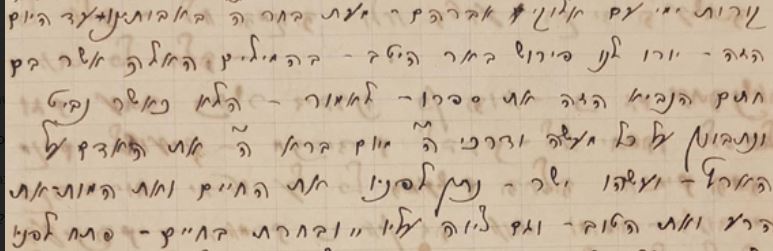 קורות ימי עם אלוקי אברהם - מעת בחר ה' באבותינו ועד היום
הזה - יורו לנו פירוש באר היטב - במילים האלה אשר בם
חתם הנביא הזה את ספרו - לאמור - הלא כאשר נביט
ונתבונן על כל מעשה ודרכי ה' מיום ברא ה' את האדם על
הארץ - ועשהו ישר - נתן לפניו את החיים ואת המות את
הרע ואת הטוב - וגם ליוה עליו "ובחרת בחיים - פתח לפניו